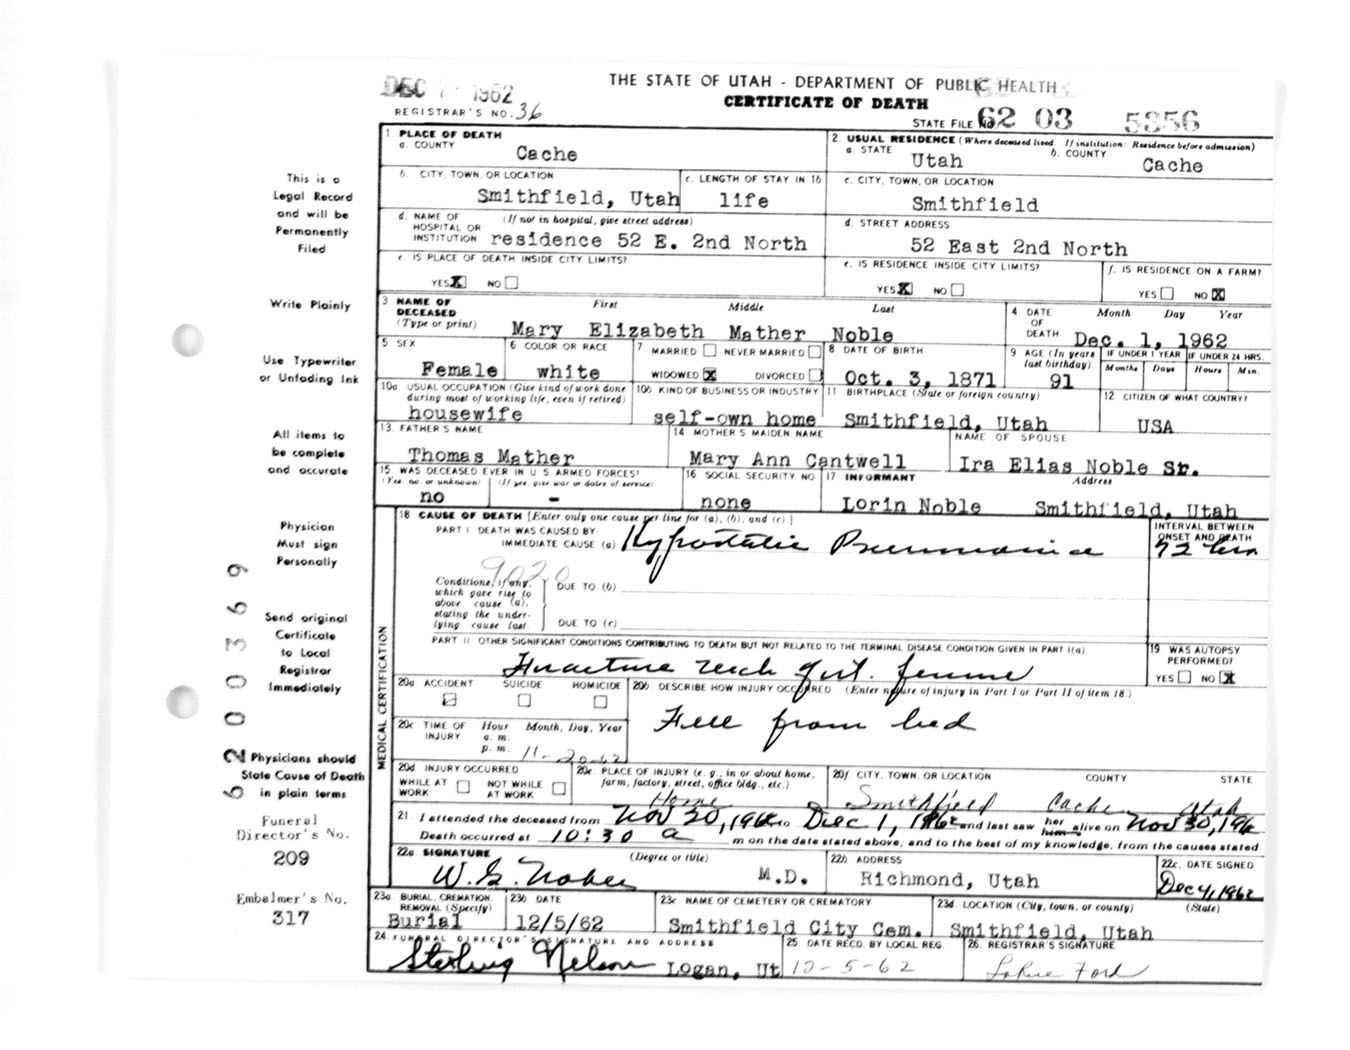 DEC 1962
THE STATE OF UTAH - DEPARTMENT OF PUBLIC HEALTH
CERTIFICATE OF DEATH
REGISTRAR'S NO. 36
STATE FILE NO. 62 03 5356
1 PLACE OF DEATH
a. COUNTY
Cache
2. USUAL RESIDENCE (Where deceased lived. If institution: Residence before admission)
a. STATE Utah b. COUNTY Cache
b. CITY, TOWN, OR LOCATION
Smithfield, Utah
c. LENGTH OF STAY IN 1b
life
c. CITY, TOWN, OR LOCATION
Smithfield
d. NAME OF HOSPITAL OR INSTITUTION (If not in hospital, give street address)
residence 52 E. 2nd North
d. STREET ADDRESS
52 East 2nd North
e. IS PLACE OF DEATH INSIDE CITY LIMITS?
YES X NO
e. IS RESIDENCE INSIDE CITY LIMITS?
YES X NO
f. IS RESIDENCE ON A FARM?
YES NO X
3 NAME OF DECEASED (Type or print)
First Middle Last
Mary Elizabeth Mather Noble
4. DATE OF DEATH Month Day Year
Dec. 1, 1962
5 SEX
Female
6 COLOR OR RACE
white
7 MARRIED NEVER MARRIED
WIDOWED X DIVORCED
8 DATE OF BIRTH
Oct. 3, 1871
9 AGE (In years last birthday)
91
IF UNDER 1 YEAR Months Days
IF UNDER 24 HRS. Hours Min.
10a USUAL OCCUPATION (Give kind of work done during most of working life, even if retired)
housewife
10b KIND OF BUSINESS OR INDUSTRY
self-own home
11 BIRTHPLACE (State or foreign country)
Smithfield, Utah
12 CITIZEN OF WHAT COUNTRY?
USA
13. FATHER'S NAME
Thomas Mather
14 MOTHER'S MAIDEN NAME
Mary Ann Cantwell
NAME OF SPOUSE
Ira Elias Noble Sr.
15 WAS DECEASED EVER IN U.S. ARMED FORCES?
(Yes, no, or unknown) (If yes, give war or dates of service)
no -
16 SOCIAL SECURITY NO
none
17 INFORMANT Address
Lorin Noble Smithfield, Utah
18. CAUSE OF DEATH [Enter only one cause per line for (a), (b), and (c).]
PART I DEATH WAS CAUSED BY:
IMMEDIATE CAUSE (a) Hypostatic Pneumonia
INTERVAL BETWEEN ONSET AND DEATH
72 hrs
9020
Conditions, if any, which gave rise to above cause (a), stating the underlying cause last.
DUE TO (b)
DUE TO (c)
PART II OTHER SIGNIFICANT CONDITIONS CONTRIBUTING TO DEATH BUT NOT RELATED TO THE TERMINAL DISEASE CONDITION GIVEN IN PART I(a)
Fracture neck of rt. femur
19 WAS AUTOPSY PERFORMED?
YES NO X
20a ACCIDENT SUICIDE HOMICIDE
20b DESCRIBE HOW INJURY OCCURRED (Enter nature of injury in Part I or Part II of item 18.)
Fell from bed
20c TIME OF INJURY Hour Month, Day, Year
a. m.
p. m. 11-20-62
20d INJURY OCCURRED
WHILE AT WORK NOT WHILE AT WORK
20e. PLACE OF INJURY (e. g., in or about home, farm, factory, street, office bldg., etc.)
Home
20f CITY, TOWN, OR LOCATION COUNTY STATE
Smithfield Cache Utah
21 I attended the deceased from Nov 20, 1962 to Dec 1, 1962 and last saw her him alive on Nov 30, 196
Death occurred at 10:30 a m on the date stated above; and to the best of my knowledge, from the causes stated.
22a SIGNATURE (Degree or title)
W. G. Noble M.D.
22b ADDRESS
Richmond, Utah
22c. DATE SIGNED
Dec 4, 1962
23a BURIAL, CREMATION, REMOVAL (Specify)
Burial
23b DATE
12/5/62
23c NAME OF CEMETERY OR CREMATORY
Smithfield City Cem.
23d. LOCATION (City, town, or county) (State)
Smithfield, Utah
24. FUNERAL DIRECTOR'S SIGNATURE AND ADDRESS
Sterling Nelson Logan, Ut
25 DATE RECD. BY LOCAL REG.
12-5-62
26. REGISTRAR'S SIGNATURE
LaRue Ford
MEDICAL CERTIFICATION
This is a
Legal Record
and will be
Permanently
Filed
Write Plainly
Use Typewriter
or Unfading Ink
All items to
be complete
and accurate
Physician
Must sign
Personally
Send original
Certificate
to Local
Registrar
Immediately
Physicians should
State Cause of Death
in plain terms
Funeral
Director's No.
209
Embalmer's No.
317
62 00369